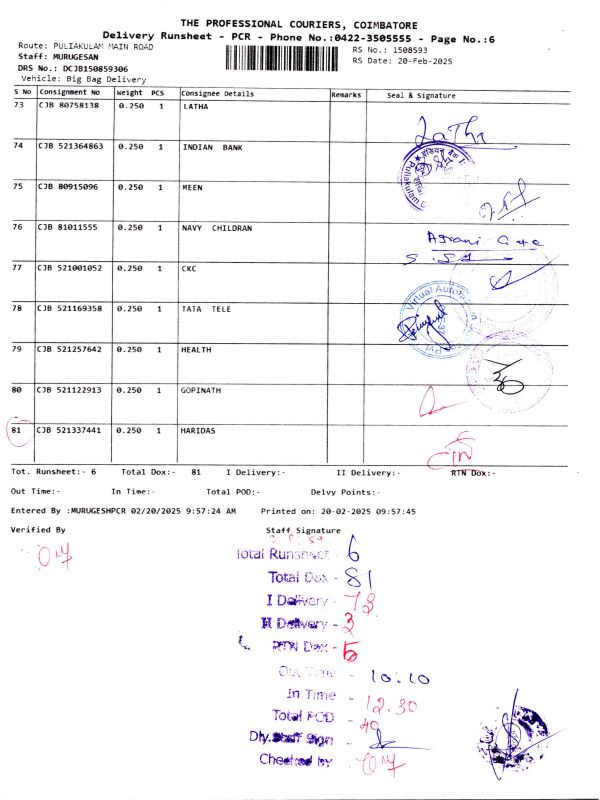 THE PROFESSIONAL COURIERS, COIMBATORE
Delivery Runsheet - PCR - Phone No.:0422-3505555 - Page No.:6
Route: PULIAKULAM MAIN ROAD
RS No.: 1508593
Staff: MURUGESAN
RS Date: 20-Feb-2025
DRS No.: DCJB150859306
Vehicle: Big Bag Delivery
S No Consignment No Weight PCS Consignee Details Remarks Seal & Signature
73 CJB 80758138 0.250 1 LATHA
Latha
74 CJB 521364863 0.250 1 INDIAN BANK
75 CJB 80915096 0.250 1 MEEN
76 CJB 81011555 0.250 1 NAVY CHILDRAN
77 CJB 521001052 0.250 1 CKC
78 CJB 521169358 0.250 1 TATA TELE
Virtual
79 CJB 521257642 0.250 1 HEALTH
80 CJB 521122913 0.250 1 GOPINATH
81 CJB 521337441 0.250 1 HARIDAS
Tot. Runsheet:- 6 Total Dox:- 81 I Delivery:- II Delivery:- RTN Dox:-
Out Time:- In Time:- Total POD:- Delvy Points:-
Entered By :MURUGESHPCR 02/20/2025 9:57:24 AM Printed on: 20-02-2025 09:57:45
Verified By Staff Signature
Total Runsheet - 6
Total Dox - 81
I Delivery - 73
II Delivery - 3
RTN Dax - 5
Out Time - 10.10
In Time - 12.30
Total POD - 49
Dly. Staff Sign -
Checked by -